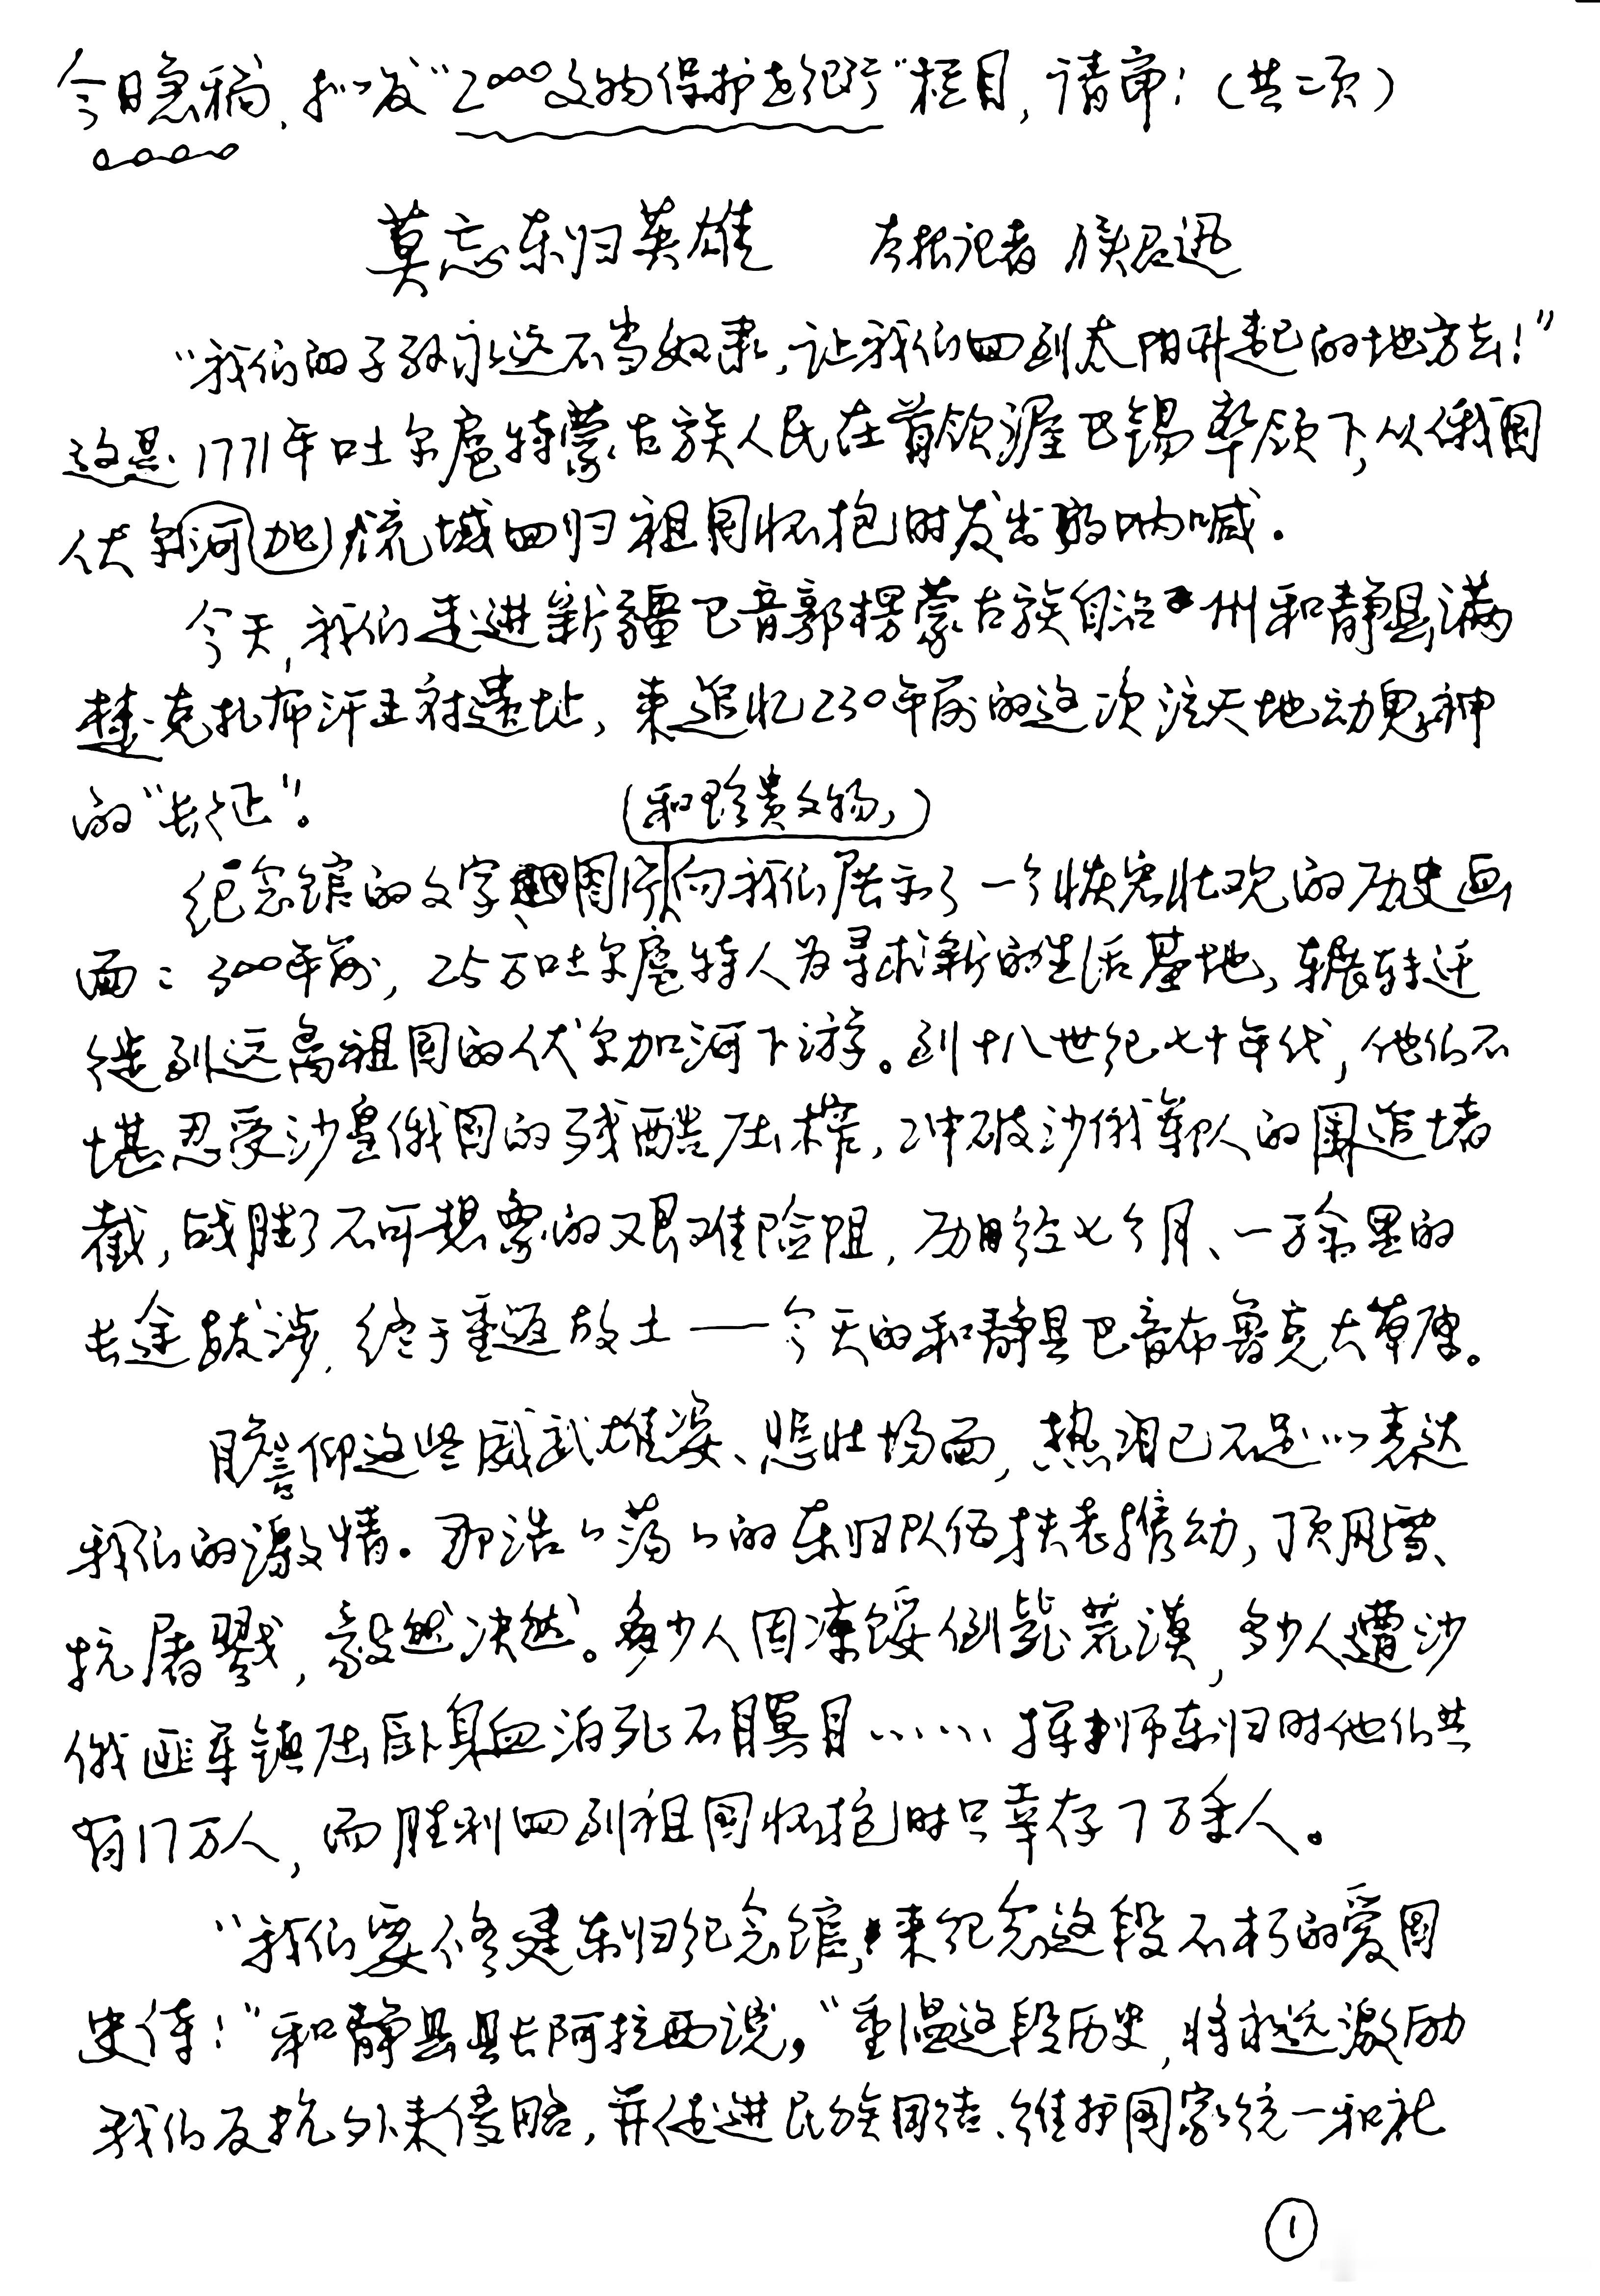 今日急稿，拟发“2000文物保护世纪行”栏目，请审！（共二页）
莫忘东归英雄 本报记者 侯召迅
“我们的子孙永远不当奴隶，让我们回到太阳升起的地方去！”
这是1771年吐尔扈特蒙古族人民在首领渥巴锡率领下，从俄国
伏尔河加流域回归祖国怀抱时发出的呐喊.
今天，我们走进新疆巴音郭楞蒙古族自治州和静县满
楚克扎布汗王府遗址，来追忆230年前的这次泣天地动鬼神
的“长征”。
（和珍贵文物，）
纪念馆的文字、图片向我们展示了一个恢宏壮观的历史画
面：300年前，25万吐尔扈特人为寻求新的生活基地，辗转迁
徙到远离祖国的伏尔加河下游。到十八世纪七十年代，他们不
堪忍受沙皇俄国的残酷压榨，冲破沙俄军队的围追堵
截，战胜了不可想象的艰难险阻，历时经七个月、一万余里的
长途跋涉，终于重返故土——今天的和静县巴音布鲁克大草原。
瞻仰这些威武雄姿、悲壮场面，热泪已不足以表达
我们的激情.那浩浩荡荡的东归队伍扶老携幼，顶风雪、
抗屠戮，毅然决然。多少人因冻馁倒毙荒漠，多少人遭沙
俄匪军镇压卧身血泊死不瞑目……挥师东归时他们共
有17万人，而胜利回到祖国怀抱时只幸存7万余人。
“我们要修建东归纪念馆，来纪念这段不朽的爱国
史诗！”和静县县长阿拉西说，“重温这段历史，将永远激励
我们反抗外来侵略，并促进民族团结、维护国家统一和社
①